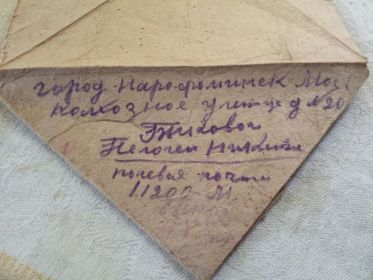 город Нарофоминск Мос
колхозное улетце д №20
Тиховой
Пелогеи Никити
полевая почта
11200-М